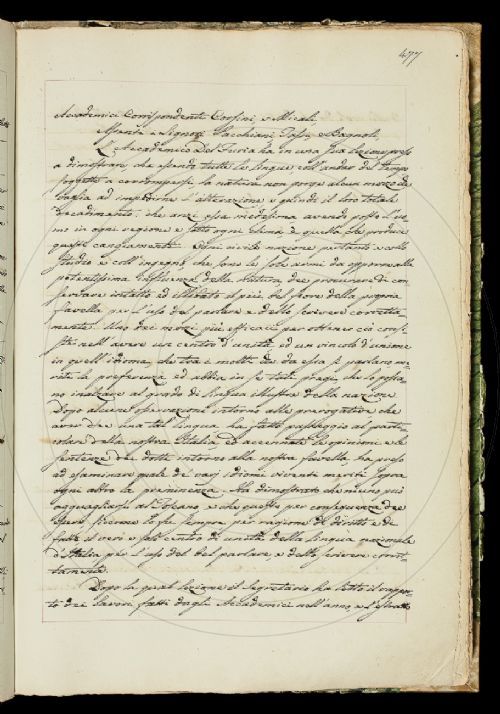 477
Accademici Corrispondenti Corsini, e Micali.
Assenti i Signori Sacchiani Tassi, e Bagnoli.
L'Accademico Del Furia ha in una sua lezione preso
a dimostrare, che essendo tutte le lingue coll'andar del tempo
soggette a corrompersi, la natura non porge alcun mezzo da
ad impedirne l'alterazione e quindi il loro totale
decadimento; che anzi essa medesima avendo posto l'uo-
mo in ogni regione e sotto ogni clima è quella che produce
questi cangiamenti. Ogni civile nazione pertanto collo
studio e coll'ingegno che sono le sole armi da opporre alla
potentissima influenza della Natura dee procurare di con-
servare intatto ed illibato il più bel fiore della propria
favella per l'uso del parlare e dello scrivere corretta-
mente. Uno dei mezzi più efficaci per ottener ciò consi-
ste nell'avere un centro d'unità ed un vincolo d'unione
in quell'idioma, che tra i molti che da essa si parlano me-
rita la preferenza ed abbia in se tali pregj che lo possa-
no inalzare al grado di lingua illustre della nazione.
Dopo alcune osservazioni intorno alle prerogative che
aver dee una tal lingua ha fatto passaggio al parti-
colare della nostra Italia ed accennate le opinioni e le
sentenze dei dotti intorno alla nostra favella, ha preso
ad esaminare quale de' varj idiomi viventi meriti sopra
ogni altro la preminenza. Ha dimostrato che niuno può
agguagliarsi al Toscano e che questo per conseguenza dee
essere siccome lo fu sempre per ragione di diritto e di
fatto il vero e solo centro di unità della lingua nazionale
d'Italia per l'uso del del parlare, e dello scrivere corret-
tamente.
Dopo la qual lezione il Segretario ha letto il rappor-
to dei lavori fatti dagli Accademici nell'anno, e l'estratto